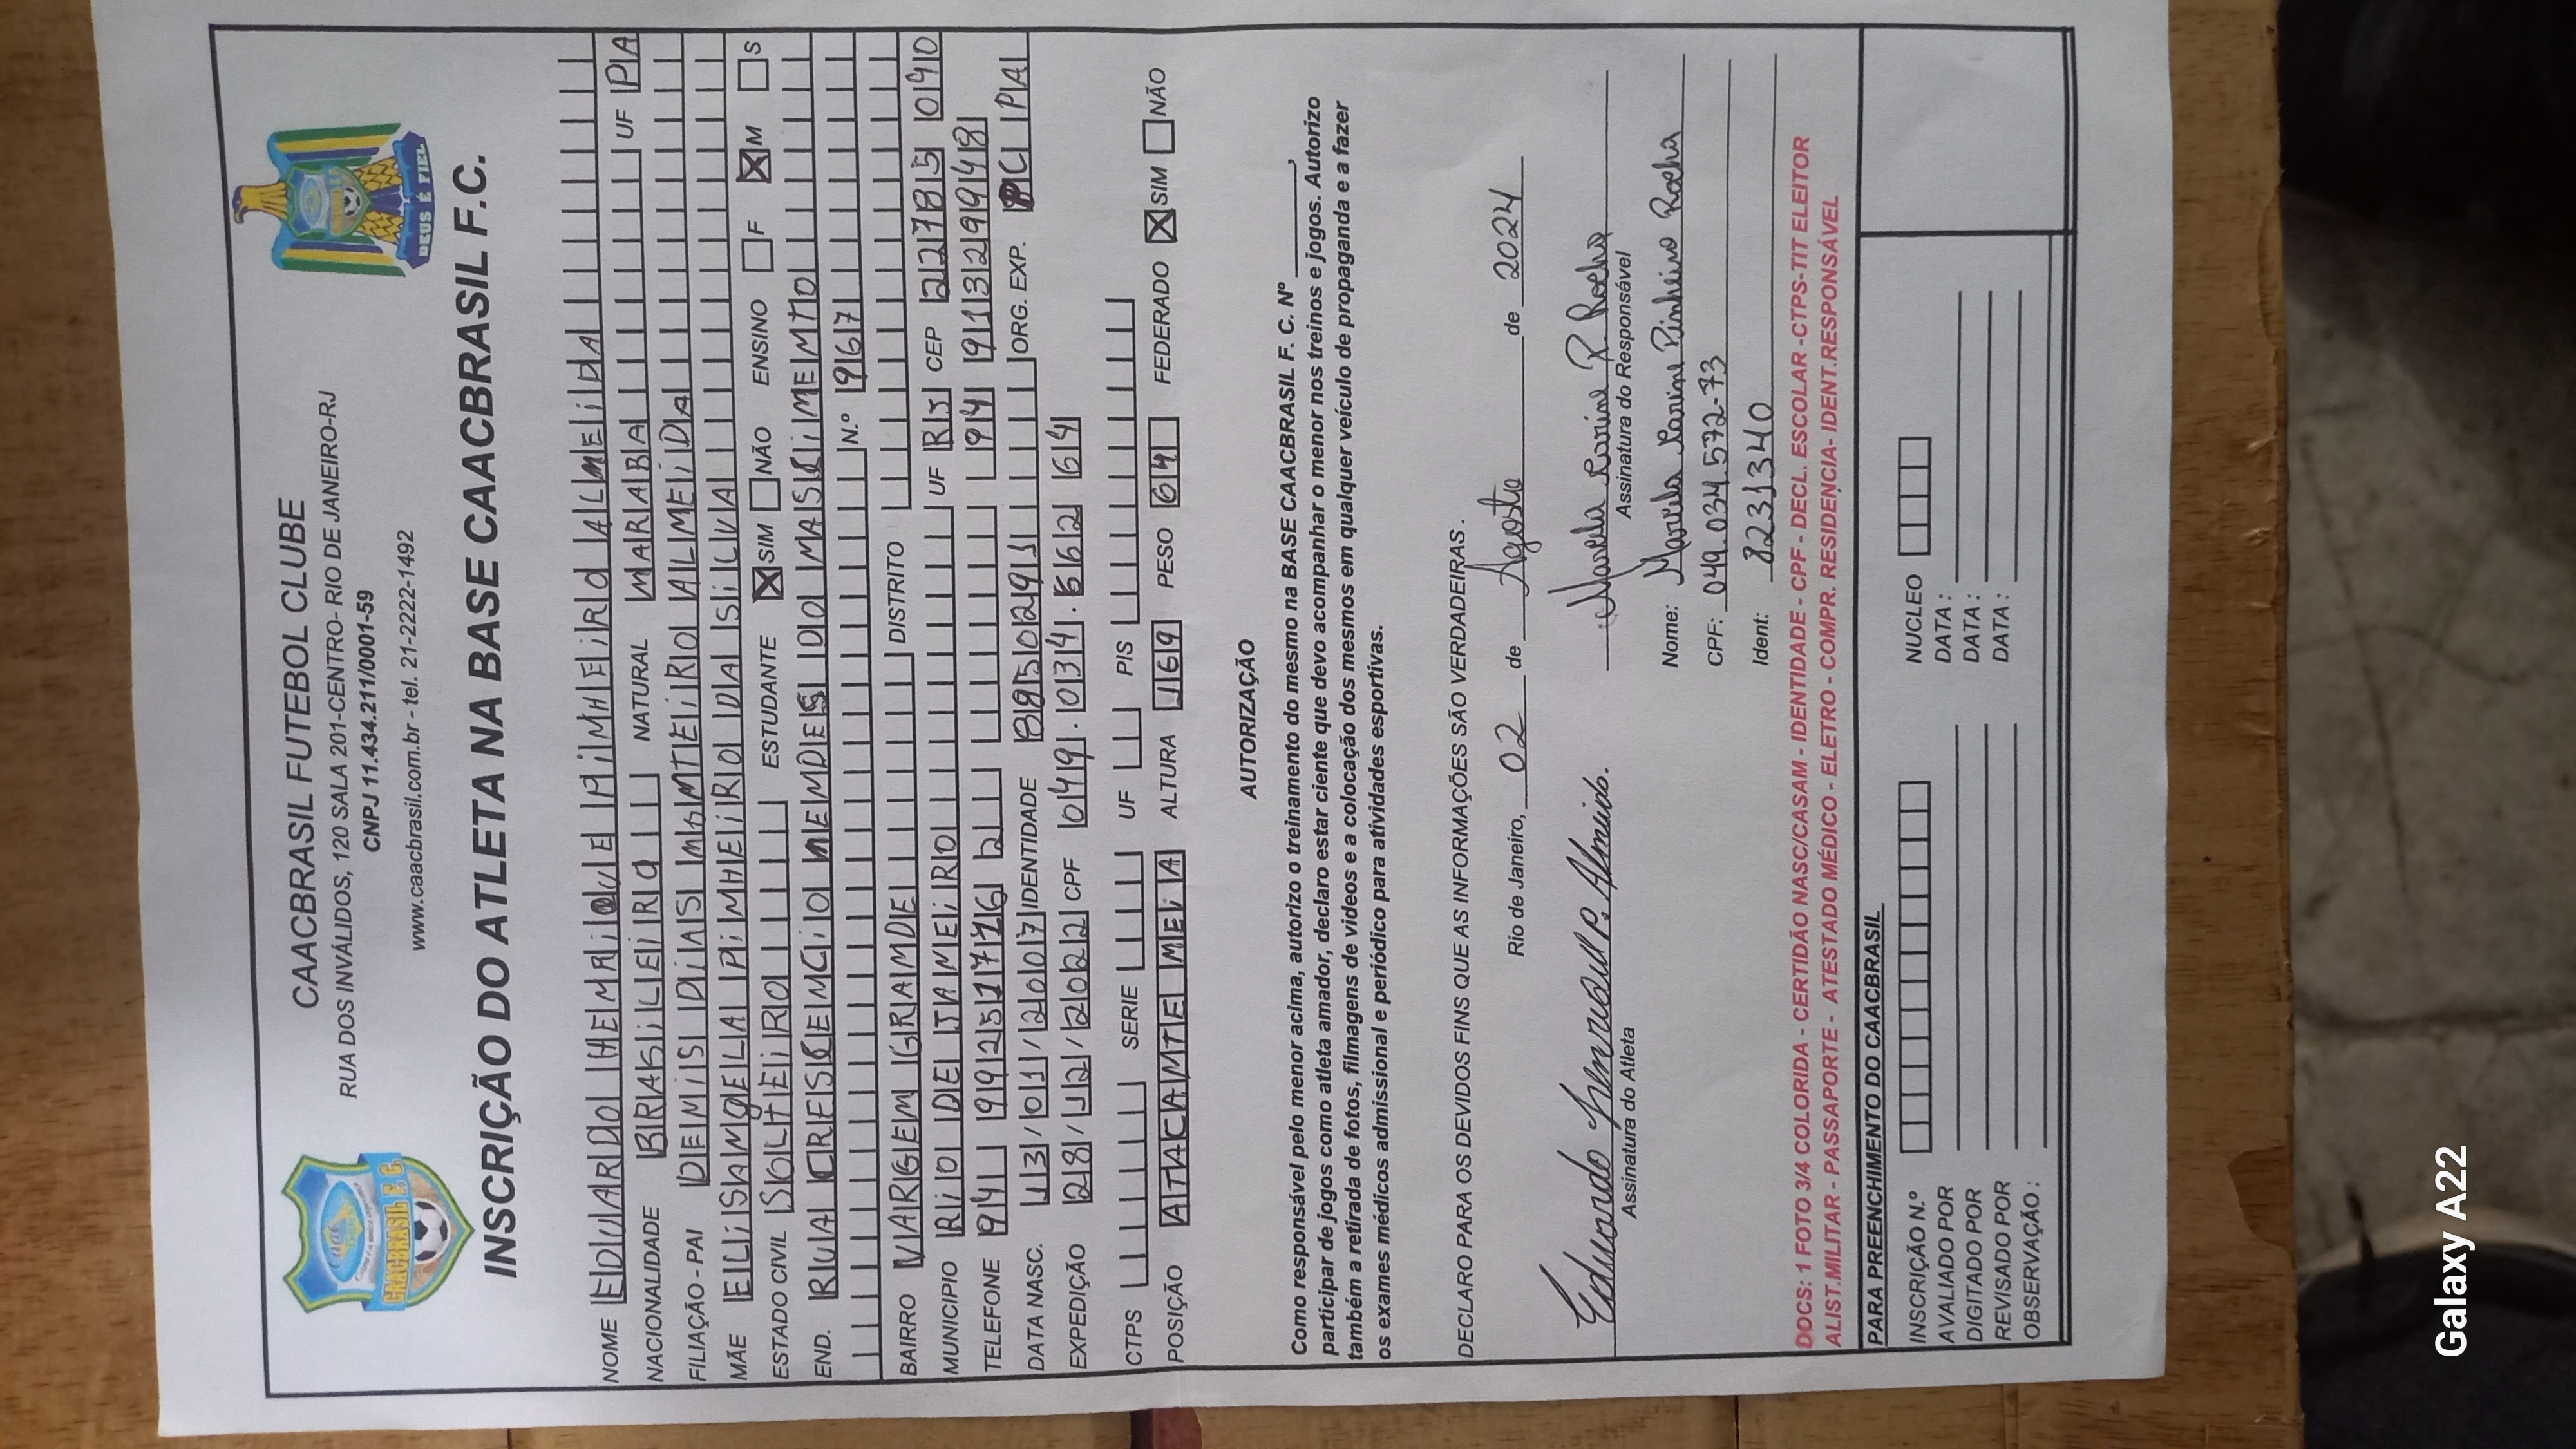 CAACBRASIL FUTEBOL CLUBE
RUA DOS INVÁLIDOS, 120 SALA 201-CENTRO- RIO DE JANEIRO-RJ
CNPJ 11.434.211/0001-59
www.caacbrasil.com.br - tel. 21-2222-1492
CAACBRASIL F. C.
DEUS É FIEL
INSCRIÇÃO DO ATLETA NA BASE CAACBRASIL F.C.
NOME EDUARDO HENRIQUE PINHEIRO ALMEIDA
NACIONALIDADE BRASILEIRO NATURAL MARABA UF PA
FILIAÇÃO - PAI DENIS DIAS MONTEIRO ALMEIDA
MÃE ELISANGELA PINHEIRO DA SILVA
ESTADO CIVIL SOLTEIRO ESTUDANTE X SIM NÃO ENSINO F X M S
END. RUA CRESCENCIO MENDES DO NASCIMENTO
N.º 967
BAIRRO VARGEM GRANDE DISTRITO
MUNICIPIO RIO DE JANEIRO UF RJ CEP 22785 040
TELEFONE 94 992517716 2 94 913299948
DATA NASC. 13/01/2007 IDENTIDADE 8950291 ORG. EXP. PC PA
EXPEDIÇÃO 28/12/2022 CPF 049.034.562 64
CTPS SERIE UF PIS
POSIÇÃO ATACANTE MEIA ALTURA 169 PESO 64 FEDERADO X SIM NÃO
AUTORIZAÇÃO
Como responsável pelo menor acima, autorizo o treinamento do mesmo na BASE CAACBRASIL F. C. Nº ______,
participar de jogos como atleta amador, declaro estar ciente que devo acompanhar o menor nos treinos e jogos. Autorizo
também a retirada de fotos, filmagens de vídeos e a colocação dos mesmos em qualquer veículo de propaganda e a fazer
os exames médicos admissional e periódico para atividades esportivas.
DECLARO PARA OS DEVIDOS FINS QUE AS INFORMAÇÕES SÃO VERDADEIRAS.
Rio de Janeiro, 02 de Agosto de 2024
Eduardo Henrique P. Almeida.
Assinatura do Atleta
Marcela Karine P. Rocha
Assinatura do Responsável
Nome: Marcela Karine Pinheiro Rocha
CPF: 049.034.572-73
Ident: 8231340
DOCS: 1 FOTO 3/4 COLORIDA - CERTIDÃO NASC/CASAM - IDENTIDADE - CPF - DECL. ESCOLAR -CTPS-TIT ELEITOR
ALIST.MILITAR - PASSAPORTE - ATESTADO MÉDICO - ELETRO - COMPR. RESIDENCIA- IDENT.RESPONSÁVEL
PARA PREENCHIMENTO DO CAACBRASIL
INSCRIÇÃO N.º NUCLEO
AVALIADO POR DATA:
DIGITADO POR DATA:
REVISADO POR DATA:
OBSERVAÇÃO:
Galaxy A22